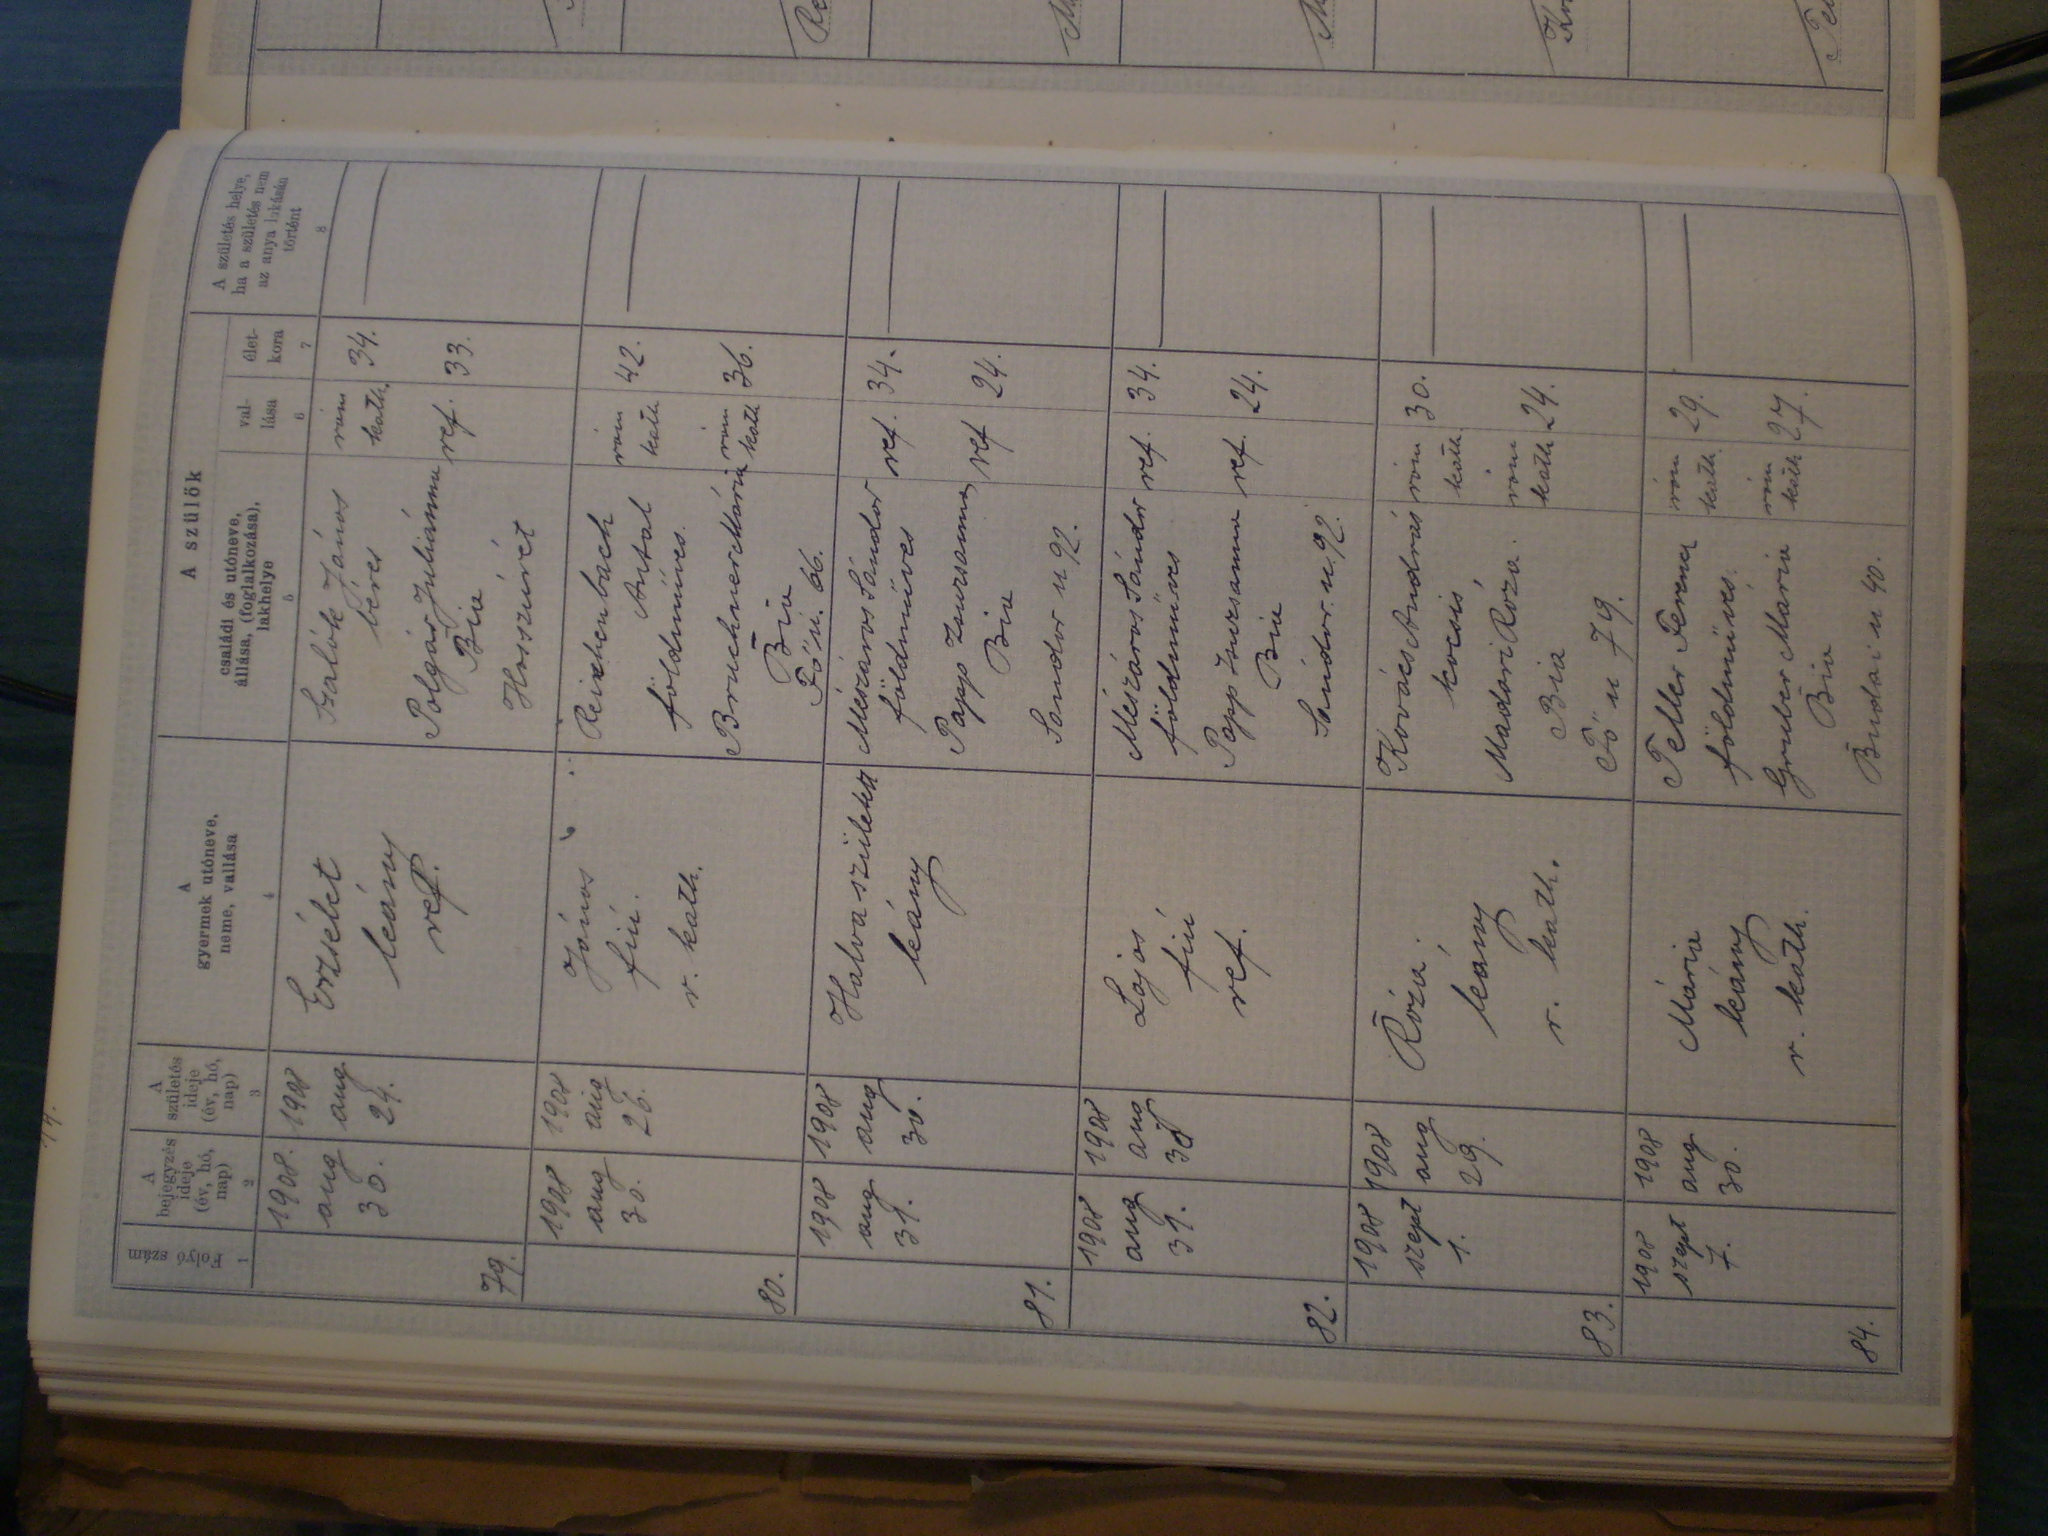 14.
Folyó szám
1
A
bejegyzés
ideje
(év, hó,
nap)
2
A
születés
ideje
(év, hó,
nap)
3
A
gyermek utóneve,
neme, vallása
4
A szülők
családi és utóneve,
állása, (foglalkozása),
lakhelye
5
val-
lása
6
élet-
kora
7
A születés helye,
ha a születés nem
az anya lakásán
történt
8
79.
1908.
aug
30.
1908
aug
24.
Erzsébet
leány
ref.
Szalók János
béres
Polgár Juliánna
Bia
Hosszúrét
róm
kath.
ref.
34.
33.
80.
1908
aug
30.
1908
aug
26.
János
fiú.
r. kath.
Reichenbach
Antal
földműves.
Bruckner Mária
Bia
Fő u. 66.
róm
kath
róm
kath
42.
36.
81.
1908
aug
31.
1908
aug
30.
Halva született
leány
Mészáros Sándor
földműves
Papp Zsuzsanna
Bia
Sandor u 92.
ref.
ref
34.
24.
82.
1908
aug
31.
1908
aug
30
Lajos
fiú
ref.
Mészáros Sándor
földműves
Papp Zsuzsanna
Bia
Sándor. u. 92.
ref.
ref.
34.
24.
83.
1908
szept
1.
1908
aug
29.
Róza.
leány
r. kath.
Kovács András
kocsis
Madari Róza.
Bia
Fő u 79.
róm
kath.
róm
kath
30.
24.
84.
1908
szept
7.
1908
aug
30.
Mária
leány
r. kath.
Teller Ferenc
földműves.
Gruber Maria
Bia
Budai u 40.
róm
kath.
róm
kath
29.
27.